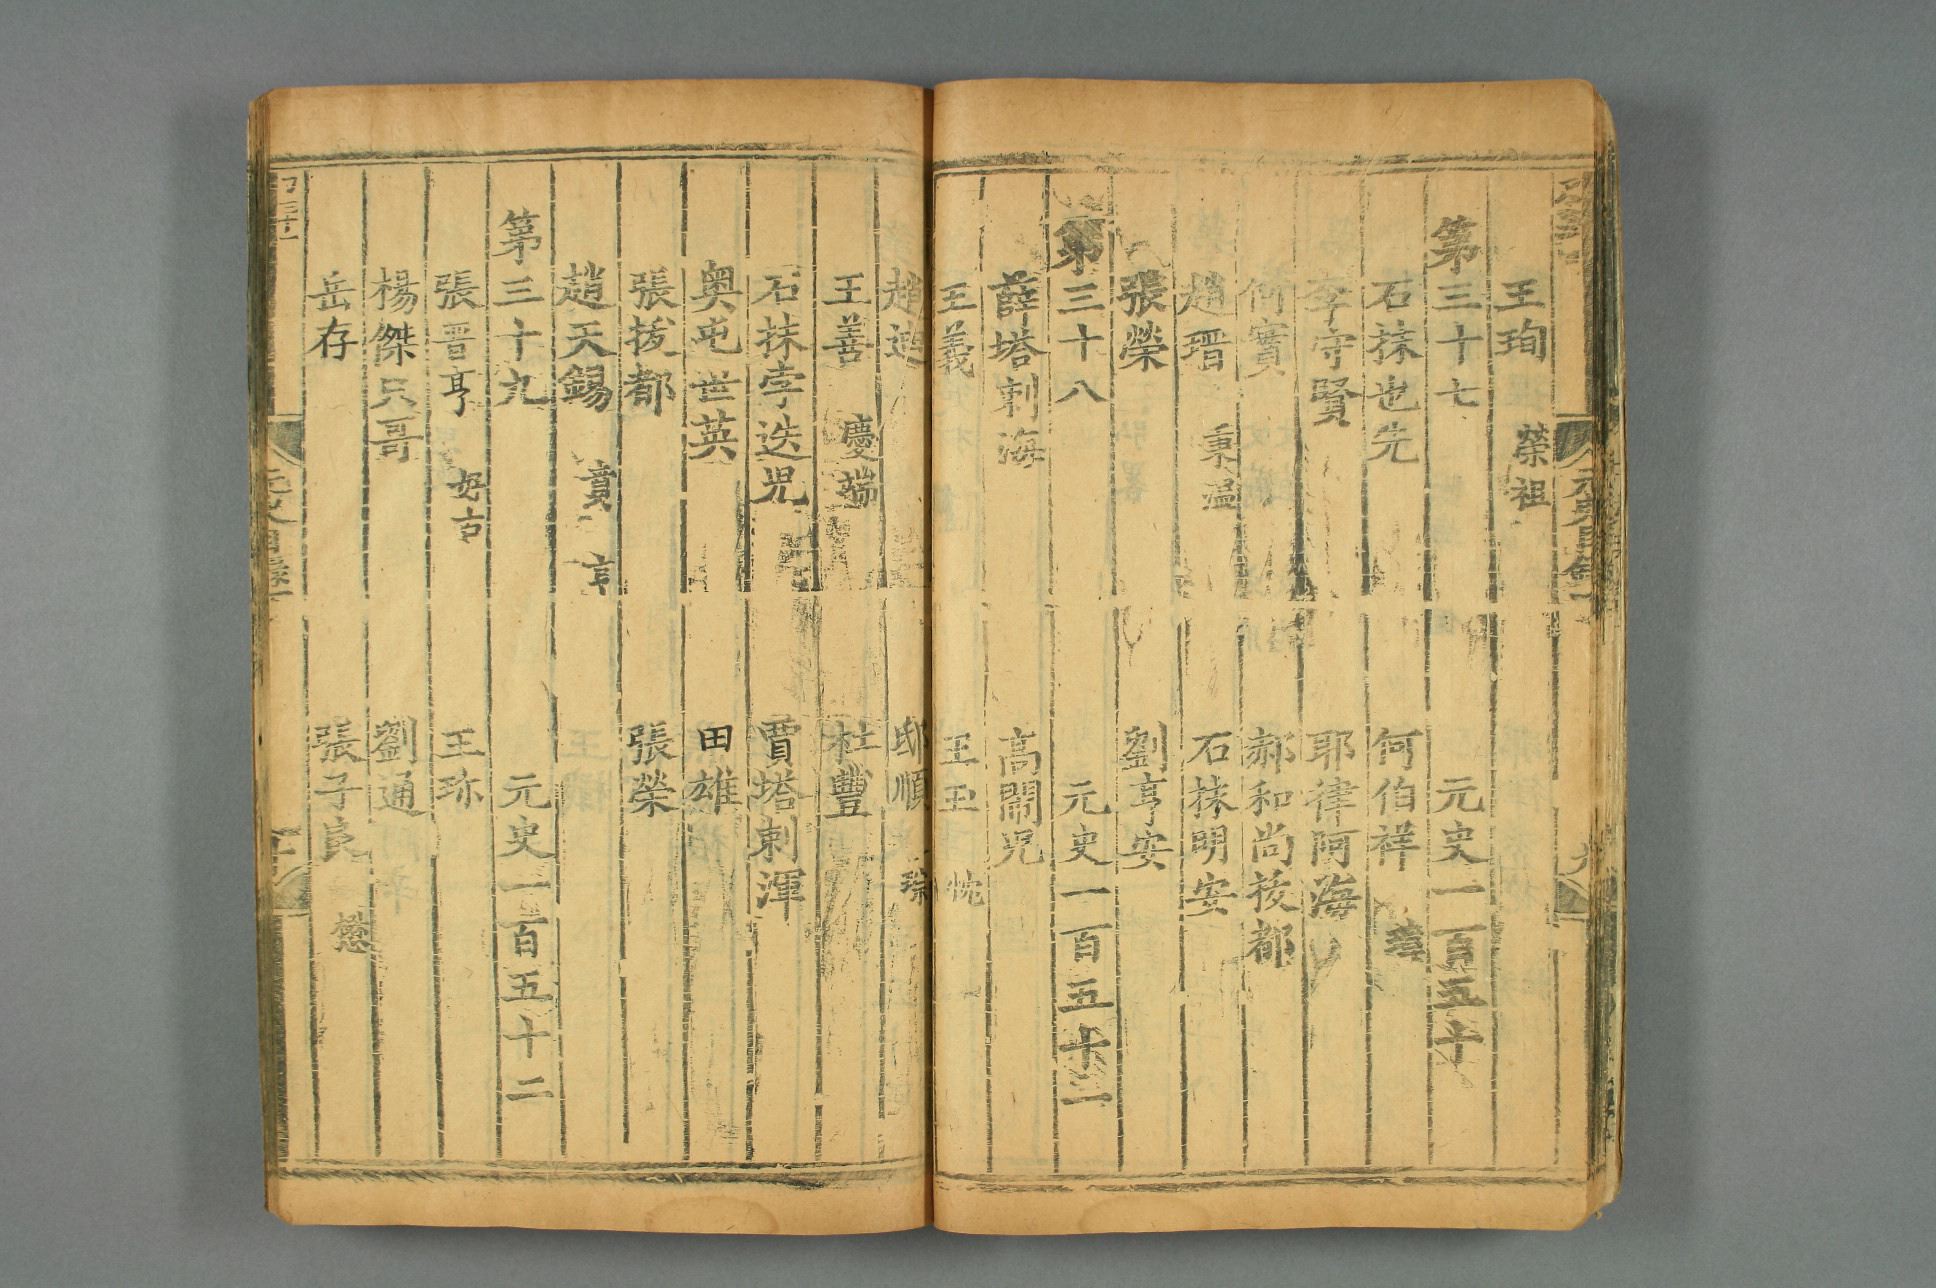 王珣 榮祖
第三十七 元史一百五十
石抹也先 何伯祥 瑋
李守賢 耶律阿海
何實 郝和尚拔都
趙瑨 秉温 石抹明安
張榮 劉亨安
第三十八 元史一百五十一
薛塔剌海 高鬧兒
王義 王玉 忱
趙迪 邸順 琮
王善 慶端 杜豐
石抹孛迭兒 賈塔剌渾
奥屯世英 田雄
張拔都 張榮
趙天錫 賁亨
第三十九 元史一百五十二
張晋亨 好古 王珍
楊傑只哥 劉通
岳存 張子良 懋
元史目録